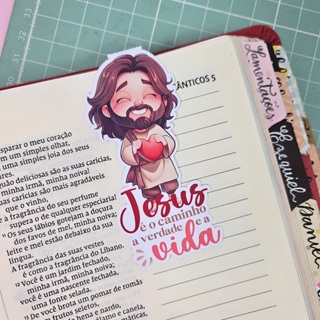 CÂNTICOS 5
sparar o meu coração
m um simples olhar,
uma simples joia dos seus
res.
quão deliciosas são as suas carícias,
minha irmã, minha noiva!
uas carícias são mais agradáveis
que o vinho,
e a fragrância do seu perfume
supera o de qualquer especiaria!
Os seus lábios gotejam a doçura
dos favos de mel, minha noiva;
leite e mel estão debaixo da sua
língua.
A fragrância das suas vestes
é como a fragrância do Líbano.
Você é um jardim fechado,
minha irmã, minha noiva;
você é uma nascente fechada,
uma fonte selada.
De você brota um pomar de romãs
com frutos seletos,
de hena e nardo,
Jesus
é o caminho
a verdade e a
vida
Lamentações
Ezequiel
Daniel